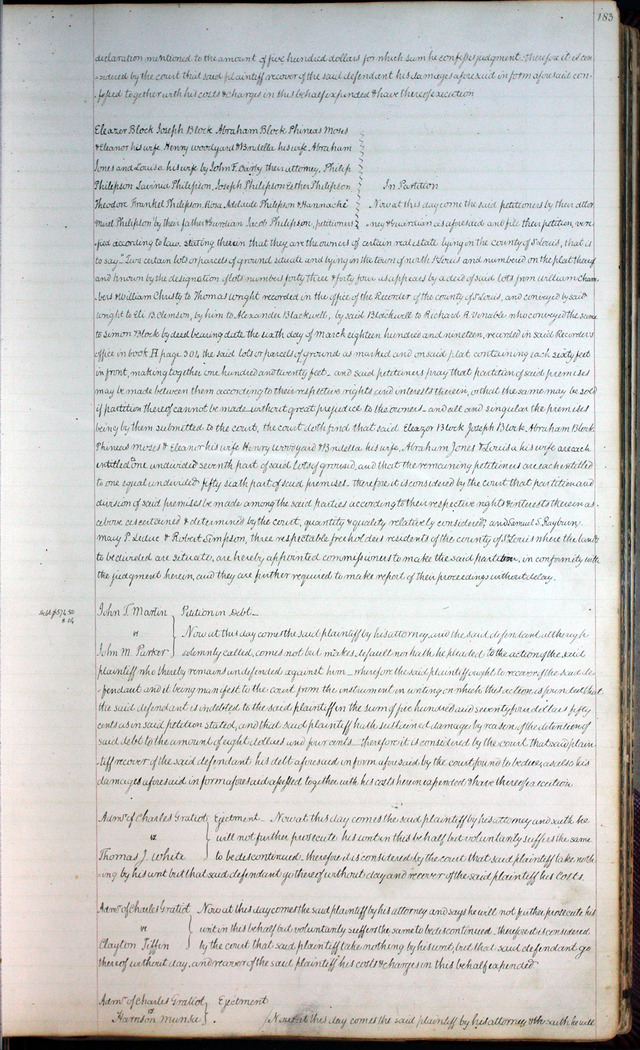 183
declaration mentioned to the amount of five hundred dollars for which sum he confesses judgment. therefore it is con-
sidered by the court that said plaintiff recover of the said defendant his damages aforesaid in form aforesaid con-
fessed together with his costs & charges in this behalf expended & have thereof execution
Eleazer Block Joseph Block Abraham Block Phineas Moses
& Eleanor his wife Henry Woodyard & Bridella his wife Abraham
Jones and Louisa his wife by John F. Darby their attorney, Philip
Philipson Lavinia Philipson, Joseph Philipson Esther Philipson
In Partition
Theodore Frankel Philipson Rosa Adelaide Philipson & Hannachi
Now at this day come the said petitioners by their attor
muel Philipson by their father & Guardian Jacob Philipson, petitioners
ney & Guardian as aforesaid and file their petition, veri
fied according to law. stating therein that they are the owners of certain real estate lying in the county of St Louis, that is
to say- Two certain lots or parcels of ground situate and lying in the town of north St Louis and numbered on the plat thereof
and known by the designation of lots number forty three & forty four as appears by a deed of said lots from William Cham
bers & William Christy to Thomas Wright recorded in the office of the Recorder of the county of St Louis, and conveyed by said
Wright to Eli B. Clemson, by him to Alexander Blackwell, by said Blackwell to Richard R. Venable who conveyed the same
to Simon Block by deed bearing date the sixth day of March eighteen hundred and nineteen, recorded in said Recorder's
office in book H page 301, the said lots or parcels of ground as marked and on said plat containing each sixty feet
in front, making together one hundred and twenty feet- and said petitioners pray that partition of said premises
may be made between them according to their respective rights and interests therein, or that the same may be sold
if partition thereof cannot be made without great prejudice to the owners- and all and singular the premises
being by them submitted to the court, the court doth find that said Eleazor Block Joseph Block Abraham Block
Phineas Moses & Eleanor his wife Henry Woodyard & Bridella his wife, Abraham Jones & Louisa his wife are each
entitled to one undivided seventh part of said lots of ground, and that the remaining petitioners are each entitled
to one equal undivided fifty sixth part of said premises. therefore it is considered by the court that partition and
division of said premises be made among the said parties according to their respective rights & interests therein as
above ascertained & determined by the court, quantity & quality relatively considered; and Samuel S. Rayburn
Mary P. Leduc & Robert Simpson, three respectable freeholders residents of the county of St Louis where the lands
to be divided are situate, are hereby appointed commissioners to make the said partition, in conformity with
the judgment herein, and they are further required to make report of their proceedings without delay.
Debt $574.50
8.04
John T. Martin
vs
John M. Parker
Petition in Debt-
Now at this day comes the said plaintiff by his attorney and the said defendant although
solemnly called, comes not but makes default nor hath he pleaded to the action of the said
plaintiff who thereby remains undefended against him- wherefore the said plaintiff ought to recover of the said de-
fendant and it being manifest to the court from the instrument in writing on which this action is founded that
the said defendant is indebted to the said plaintiff in the sum of five hundred and seventy four dollars fifty
cents as in said petition stated, and that said plaintiff hath sustained damage by reason of the detention of
said debt to the amount of eight dollars and four cents- therefore it is considered by the court that said plain-
tiff recover of the said defendant his debt aforesaid in form aforesaid by the court found to be due, as also his
damages aforesaid in form aforesaid assessed together with his costs herein expended & have thereof execution
Admrs of Charles Gratiot
vs
Thomas J. White
Ejectment- Now at this day comes the said plaintiff by his attorney and saith he
will not further prosecute his writ in this behalf but voluntarily suffers the same
to be discontinued. therefore it is considered by the court that said plaintiff take noth
ing by his writ but that said defendant go thereof without day and recover of the said plaintiff his costs.
Admrs of Charles Gratiot
vs
Clayton Tiffin
Now at this day comes the said plaintiff by his attorney and says he will not further prosecute his
writ in this behalf but voluntarily suffers the same to be discontinued. therefore it is considered
by the court that said plaintiff take nothing by his writ, but that said defendant go
thereof without day, and recover of the said plaintiff his costs & charges in this behalf expended
Admrs of Charles Gratiot
vs
Harrison Munke
Ejectment
Now at this day comes the said plaintiff by his attorney & saith he will